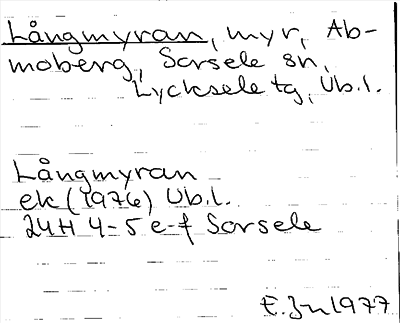 Långmyran, myr, Ab-
moberg, Sorsele sn,
Lycksele tg, Vb.l.
Långmyran
ek (1976) Vb.l.
24H 4-5 e-f Sorsele
E. Jn 1977